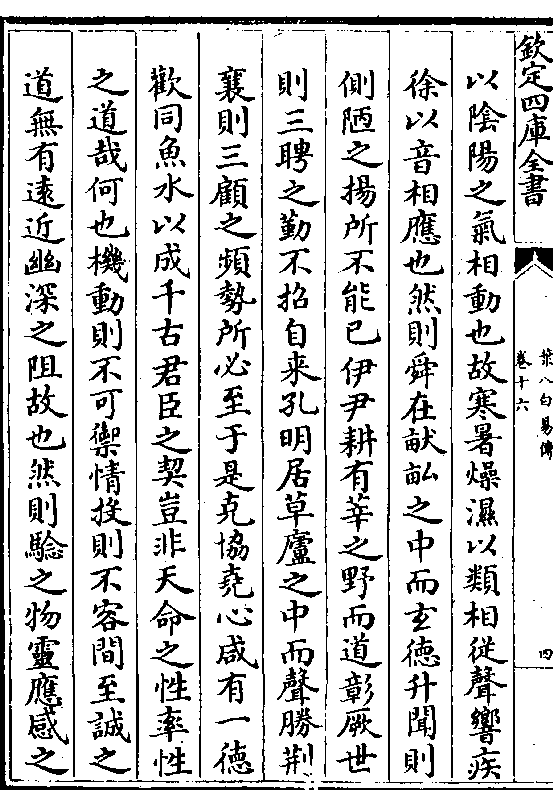 欽定四庫全書
葉八白易傳
卷十六
四
以陰陽之氣相動也故寒暑燥濕以類相從聲響疾
徐以音相應也然則舜在畎畝之中而玄德升聞則
側陋之揚所不能已伊尹耕有莘之野而道彰厥世
則三聘之勤不招自来孔明居草廬之中而聲勝荆
襄則三顧之頻勢所必至于是克協堯心咸有一德
歡同魚水以成千古君臣之契豈非天命之性率性
之道哉何也機動則不可禦情投則不容間至誠之
道無有遠近幽深之阻故也然則驗之物靈應感之